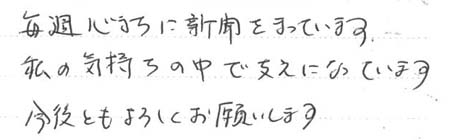 毎週心まちに新聞をまっています。
私の気持ちの中で支えになっています
今後ともよろしくお願いします